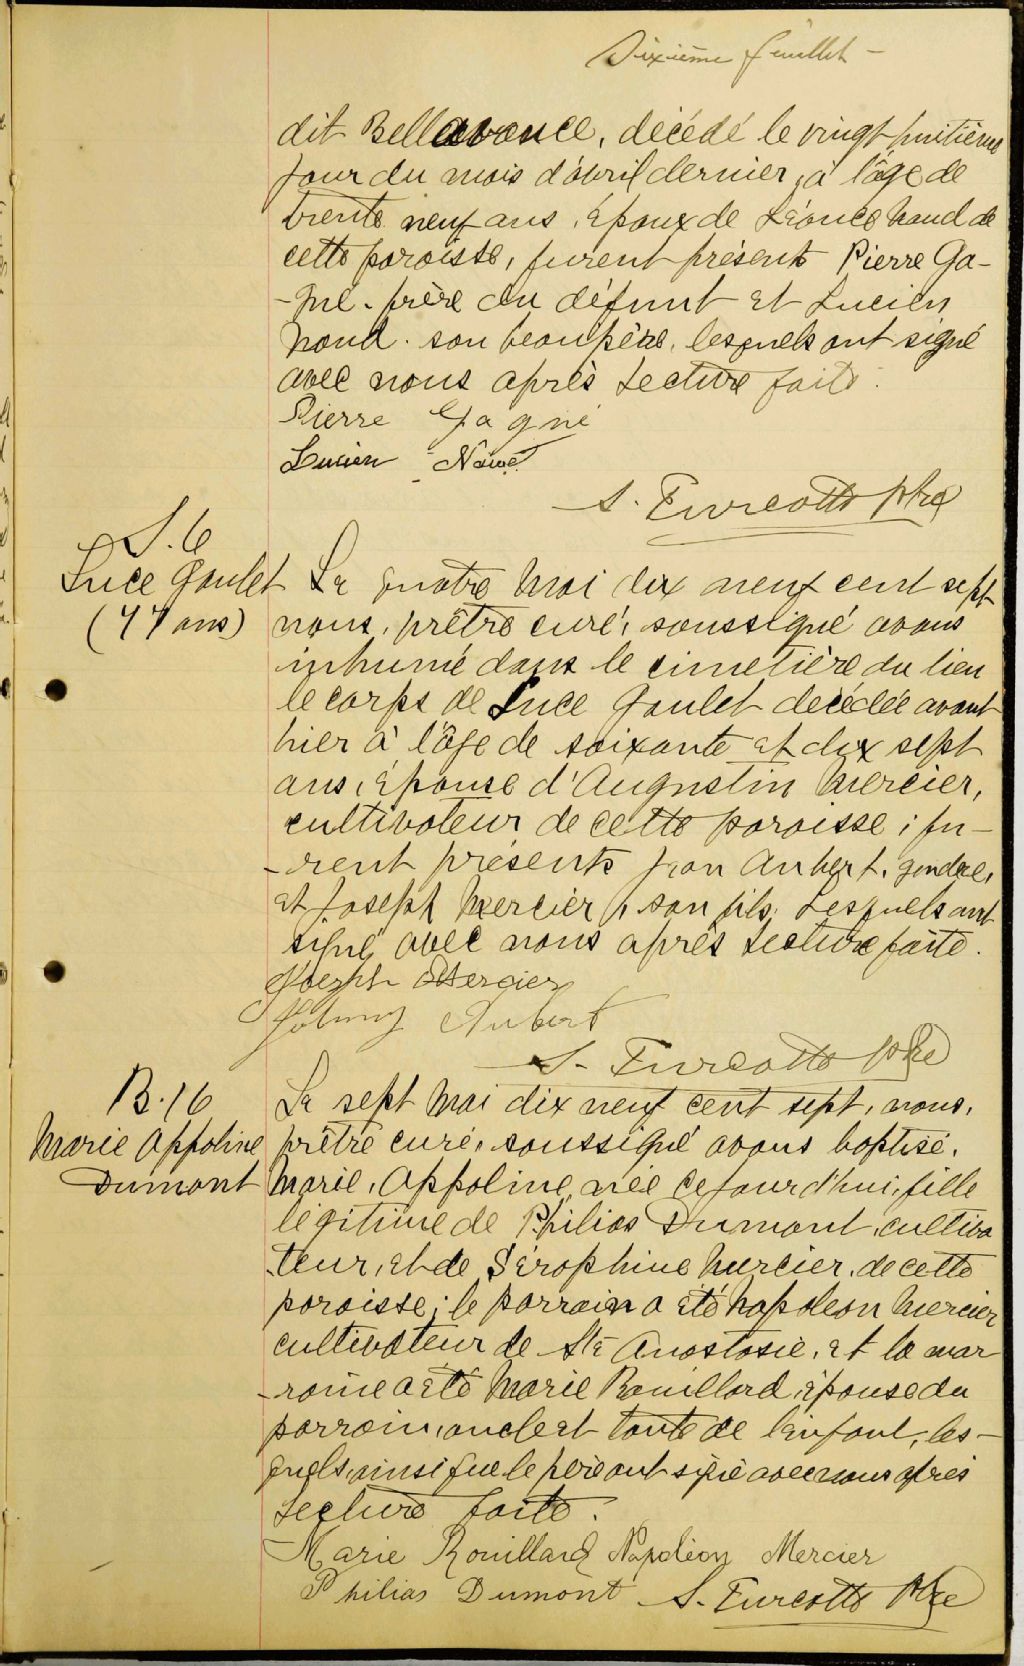 Dixième feuillet -
dit Bellavance, décédé le vingt huitième
jour du mois d'avril dernier, à l'âge de
trente neuf ans, époux de Léonce Naud de
cette paroisse, furent présents Pierre Ga-
-gné, frère du défunt et Lucien
Naud, son beau père, lesquels ont signé
avec nous après lecture faite.
Pierre Gagné
Lucien Naud
S. Turcotte ptre
S. 6
Luce Goulet
(77 ans)
Le quatre Mai dix neuf cent sept
nous, prêtre curé, soussigné avons
inhumé dans le cimetière du lieu
le corps de Luce Goulet décédée avant
hier à l'âge de soixante et dix sept
ans, épouse d'Augustin Mercier,
cultivateur de cette paroisse ; fu-
-rent présents Jean Aubert, gendre,
et Joseph Mercier, son fils, lesquels ont
signé avec nous après lecture faite.
Joseph Mercier
Johnny Aubert
S. Turcotte ptre
B. 16
Marie Appoline
Dumont
Le sept Mai dix neuf cent sept, nous,
prêtre curé, soussigné avons baptisé,
Marie, Appoline, née ce jour d'hui, fille
légitime de Philias Dumont, cultiva
teur, et de Séraphine Mercier, de cette
paroisse ; le parrain a été Napoléon Mercier
cultivateur de Ste Anastasie, et la mar
-raine a été Marie Rouillard, épouse du
parrain, oncle et tante de l'enfant, les-
quels, ainsi que le père ont signé avec nous après
lecture faite.
Marie Rouillard Napoléon Mercier
Philias Dumont S. Turcotte ptre